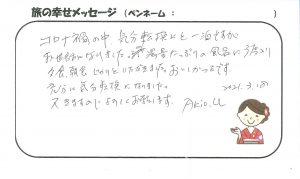 旅の幸せメッセージ (ペンネーム: )
コロナ禍の中 気分転換にと一泊ですが
お世話になりました。湯量たっぷりの風呂に浸り
夕食、朝食 しっかりといただきました。おいしかったです。
充分に気分転換になりました。
又きますのでよろしくお願いします。
2021.3.18
Akio.U